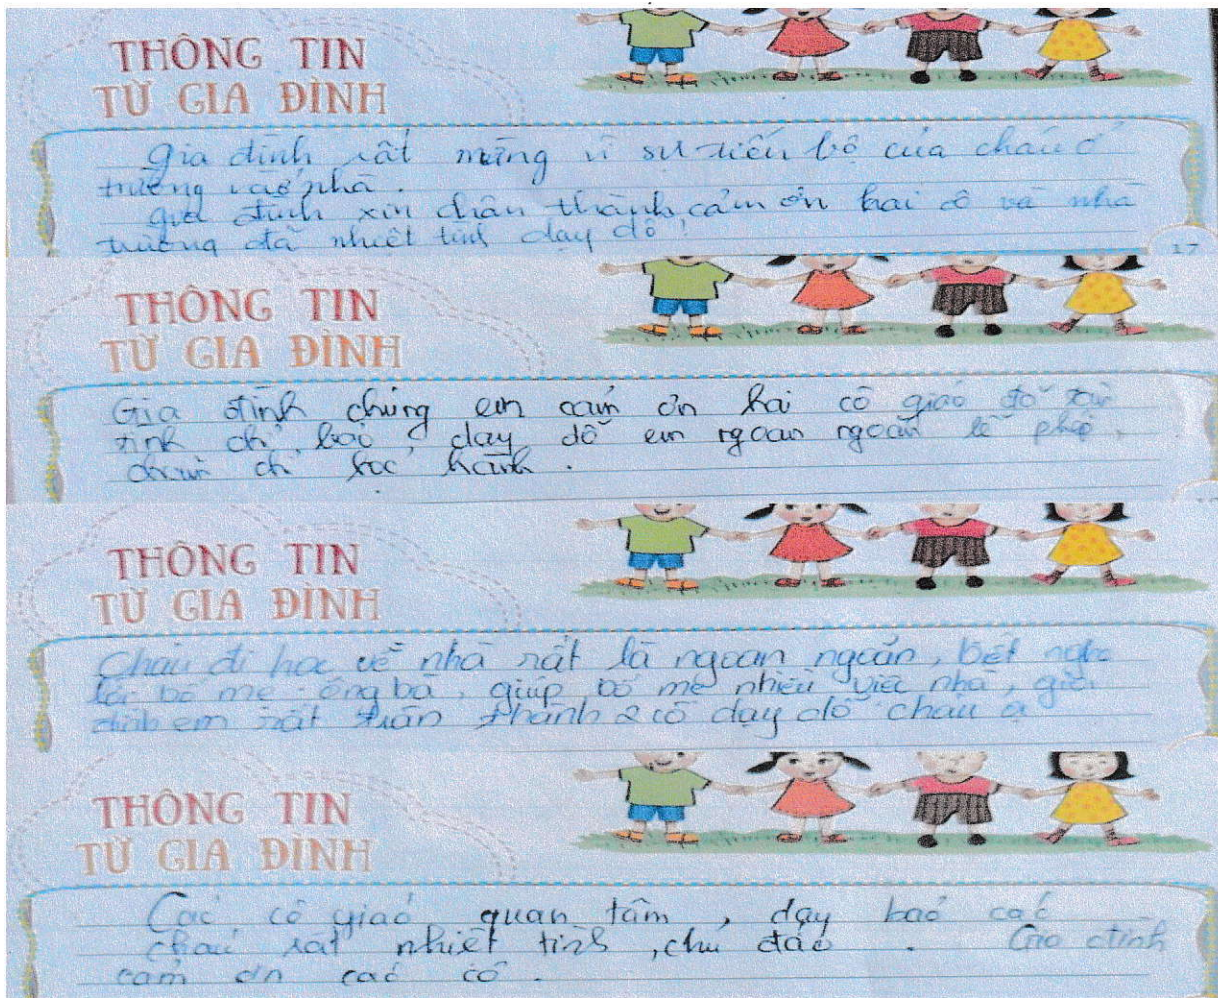 THÔNG TIN
TỪ GIA ĐÌNH
Gia đình rất mừng vì sự tiến bộ của cháu ở
trường và ở nhà.
Gia đình xin chân thành cảm ơn hai cô và nhà
trường đã nhiệt tình dạy dỗ!
17
THÔNG TIN
TỪ GIA ĐÌNH
Gia đình chúng em cảm ơn hai cô giáo đã tận
tình chỉ bảo, dạy dỗ em ngoan ngoãn lễ phép,
chăm chỉ học hành.
THÔNG TIN
TỪ GIA ĐÌNH
Cháu đi học về nhà rất là ngoan ngoãn, biết nghe
lời bố mẹ ông bà, giúp bố mẹ nhiều việc nhà, gia
đình em rất thành 2 cô dạy dỗ cháu ạ
THÔNG TIN
TỪ GIA ĐÌNH
Các cô giáo quan tâm, dạy bảo các
cháu rất nhiệt tình, chu đáo. Gia đình
cảm ơn các cô.